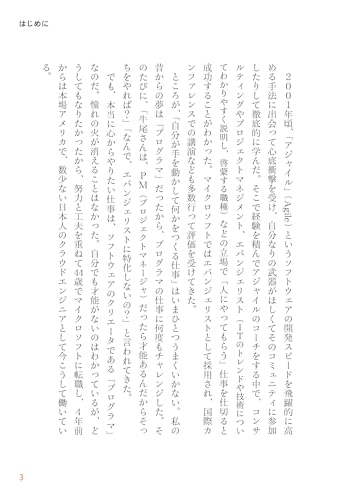 はじめに
2001年頃、「アジャイル」(Agile)というソフトウェアの開発スピードを飛躍的に高
める手法に出会って心底衝撃を受け、自分なりの武器がほしくてそのコミュニティに参加
したりして徹底的に学んだ。そこで経験を積んでアジャイルのコーチをする中で、コンサ
ルティングやプロジェクトマネジメント、エバンジェリスト(ITのトレンドや技術につい
てわかりやすく説明し、啓蒙する職種)などの立場で「人にやってもらう」仕事を仕切ると
成功することがわかった。マイクロソフトではエバンジェリストとして採用され、国際カ
ンファレンスでの講演なども多数行って評価を受けてきた。
ところが、「自分が手を動かして何かをつくる仕事」はいまひとつうまくいかない。私の
昔からの夢は「プログラマ」だったから、プログラマの仕事に何度もチャレンジした。そ
のたびに、「牛尾さんは、PM(プロジェクトマネージャ)だったら才能あるんだからそっ
ちをやれば?」「なんで、エバンジェリストに特化しないの?」と言われてきた。
でも、本当に心からやりたい仕事は、ソフトウェアのクリエータである「プログラマ」
なのだ。憧れの火が消えることはなかった。自分でも才能がないのはわかっているが、ど
うしてもなりたかったから、努力と工夫を重ねて44歳でマイクロソフトに転職し、4年前
からは本場アメリカで、数少ない日本人のクラウドエンジニアとして今こうして働いてい
る。
3